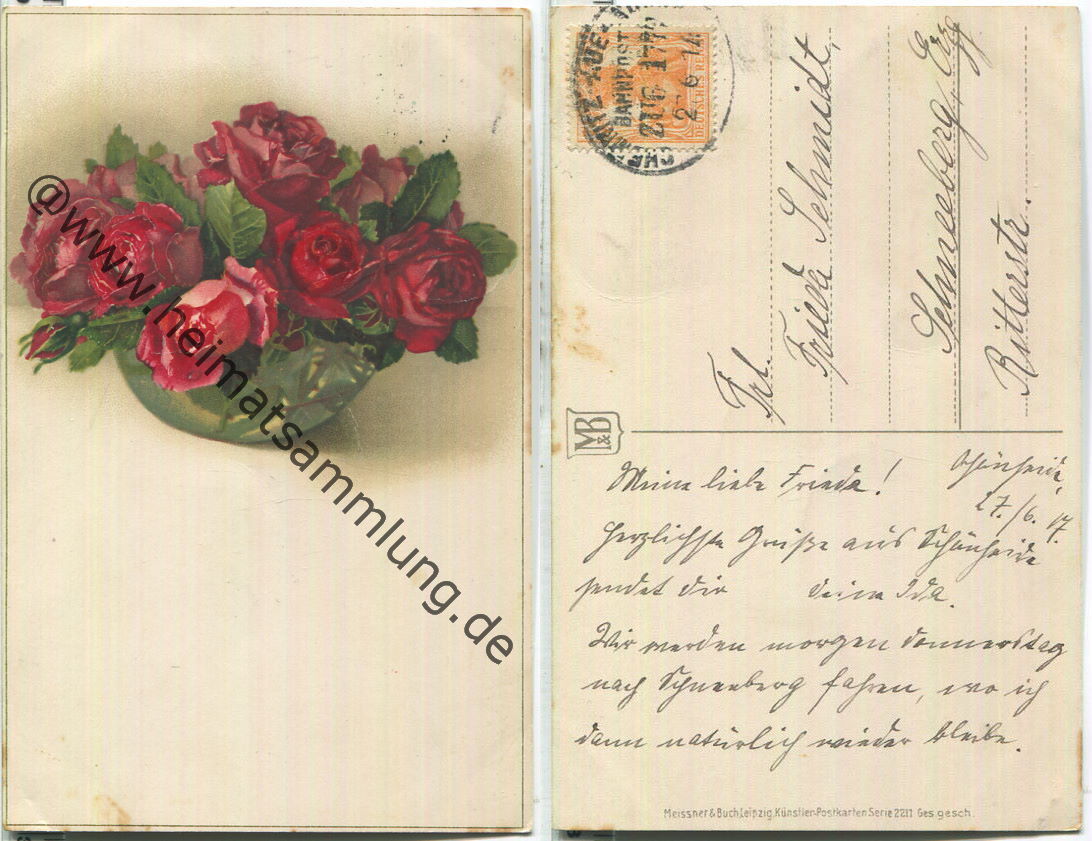 @www.heimatsammlung.de
BAHNPOST
ZUG 177
DEUTSCHES REICH
Frl.
Frieda Schmidt,
Schneeberg, Erzg
Ritterstr.
M&B
Schönheide,
27./6. 17.
Meine liebe Frieda!
Herzlichste Grüße aus Schönheide
sendet dir deine Ida.
Wir werden morgen Donnerstag
nach Schneeberg fahren, wo ich
dann natürlich wieder bleibe.
Meissner & Buch, Leipzig, Künstler-Postkarten Serie 2211 Ges. gesch.